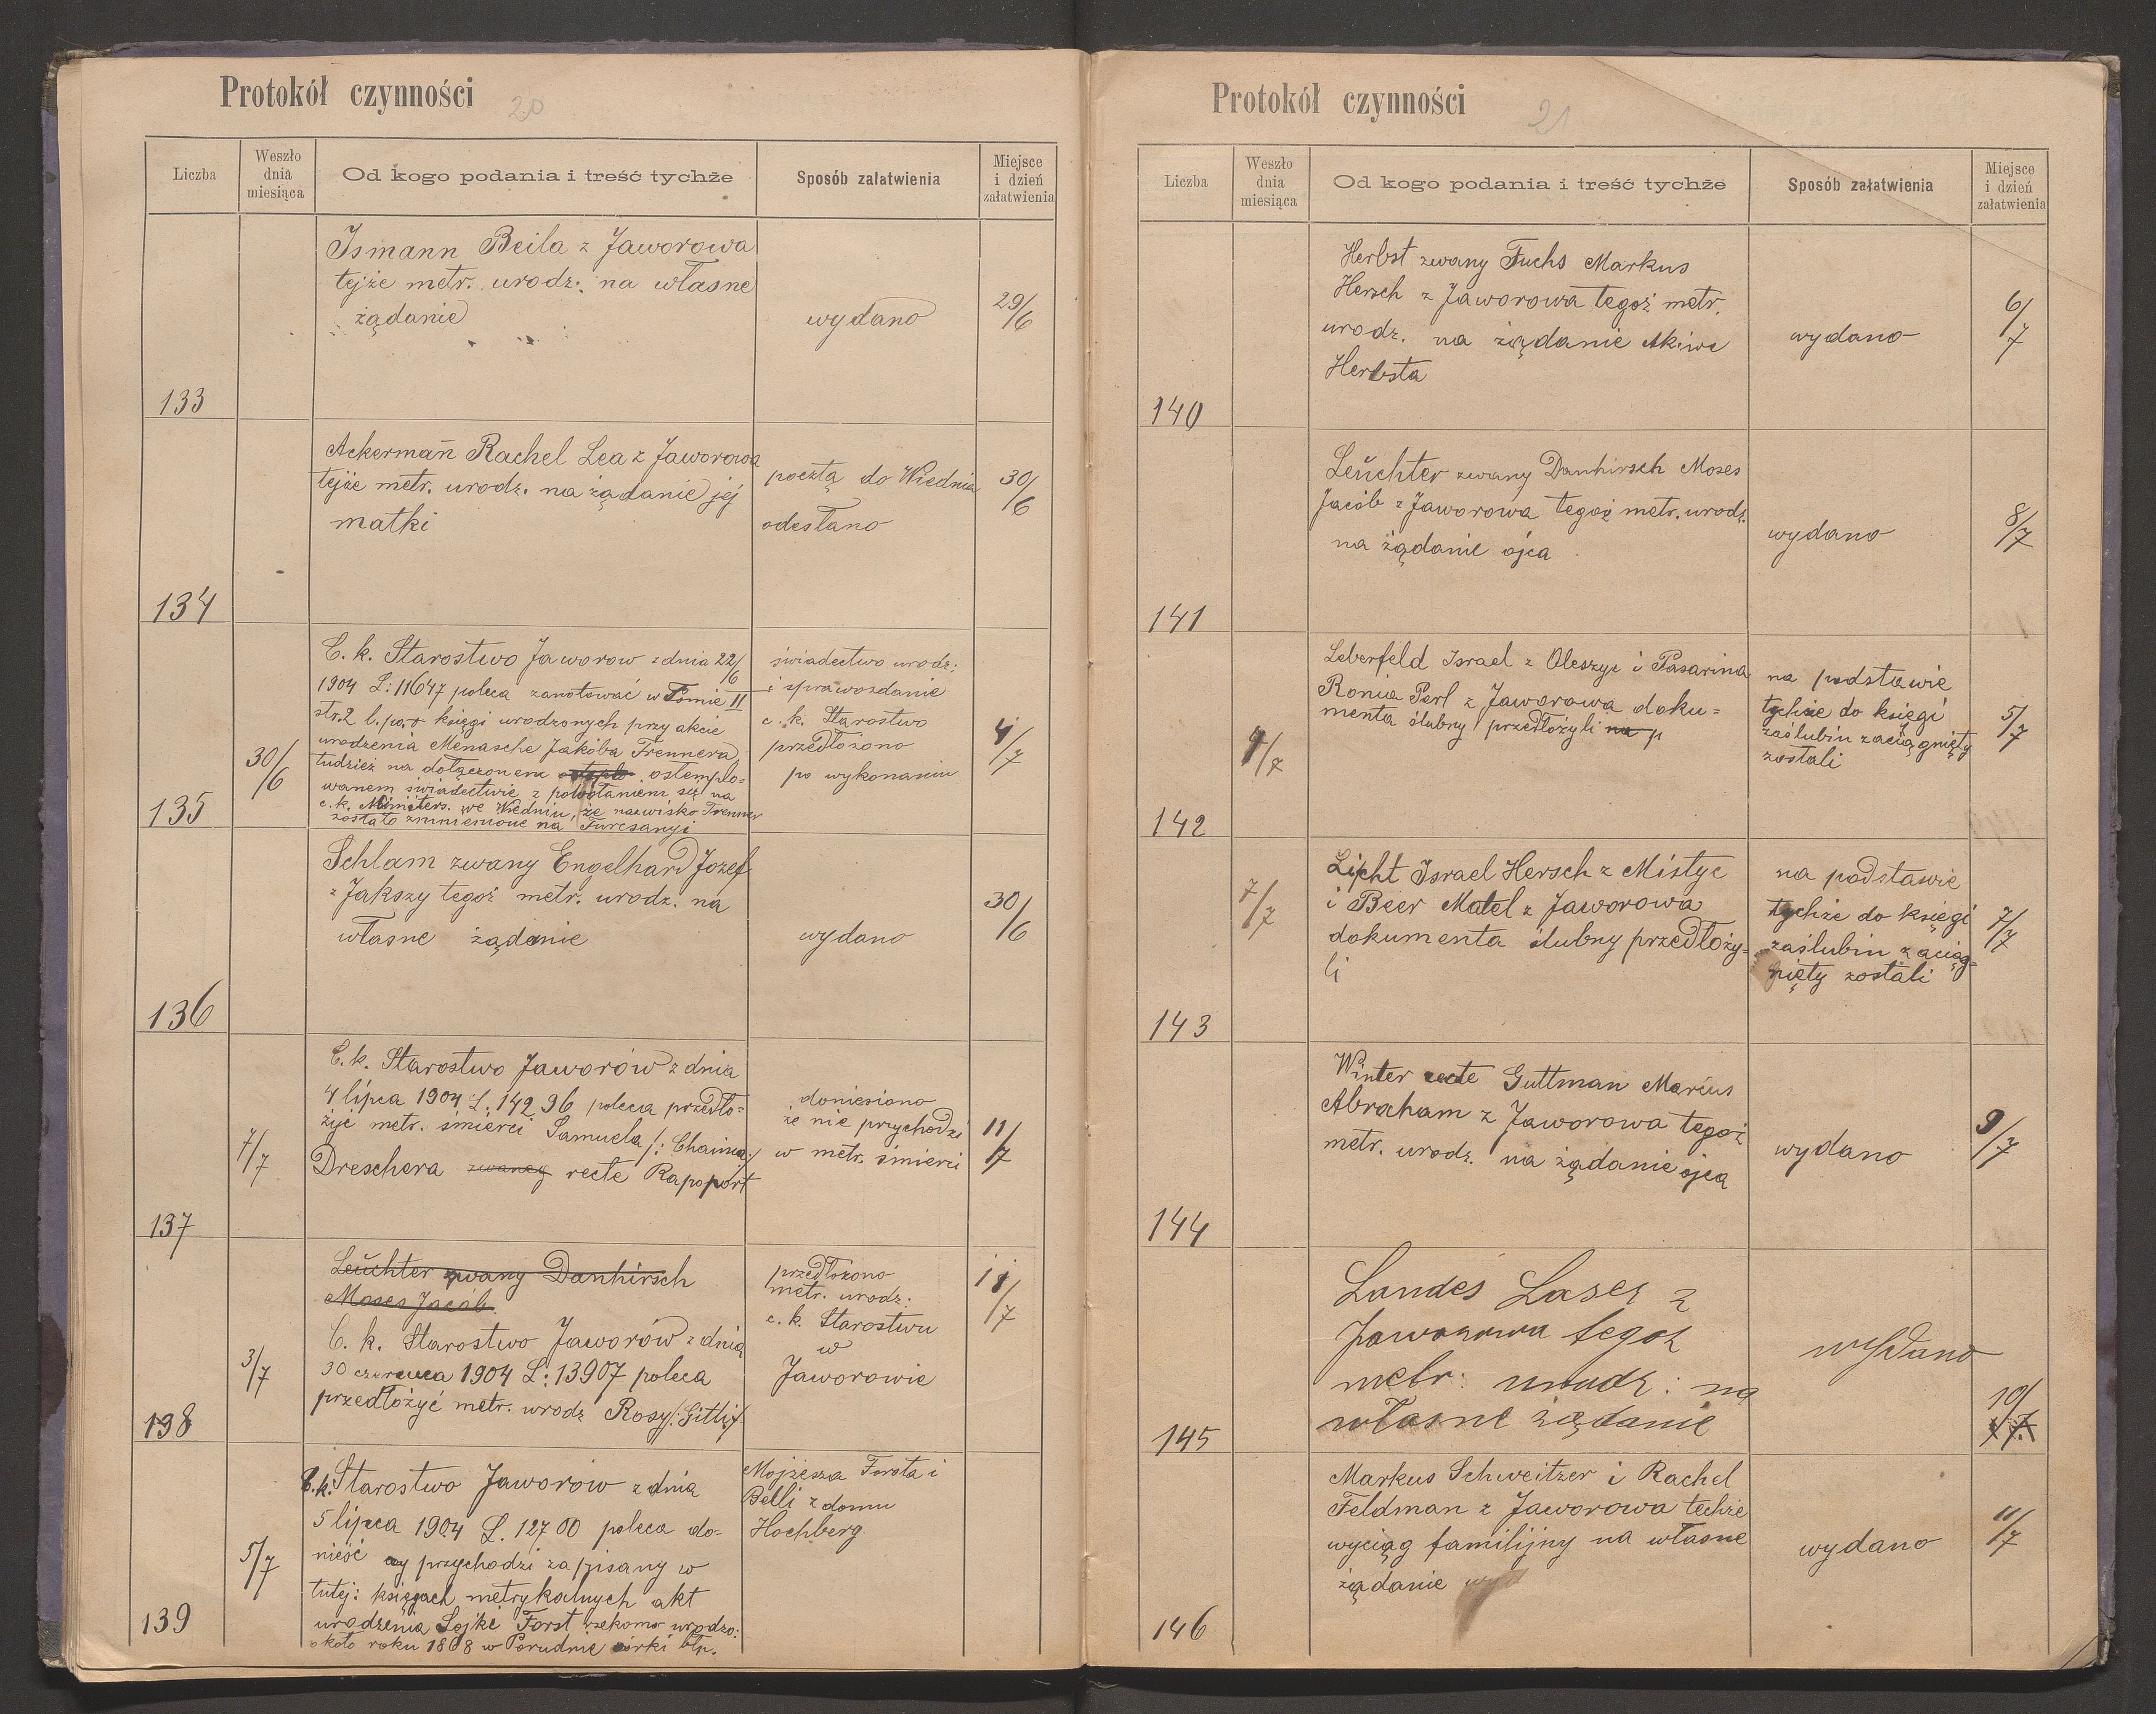 Protokół czynności
20
Liczba
Weszło
dnia
miesiąca
Od kogo podania i treść tychże
Sposób załatwienia
Miejsce
i dzień
załatwienia
133
Ismann Beila z Jaworowa
tejże metr. urodz: na własne
żądanie
wydano
29/6
134
Ackermañ Rachel Lea z Jaworowa
tejże metr. urodz. na żądanie jej
matki
pocztą do Wiednia
odesłano
30/6
135
30/6
C. k. Starostwo Jaworow z dnia 22/6
1904 L: 11647 poleca zanotować w Tomie II
str. 2 l. po. księgi urodzonych przy akcie
urodzenia Menasche Jakóba Trennera
tudzież na dołączonem ostemplo-
wanem świadectwie z powołaniem się na
c. k. Minsters. we Wiedniu, że nazwisko Trenner
zostało zmienione na Furcsanyi
świadectwo urodz:
i sprawozdanie
c. k. Starostwo
przedłożono
po wykonaniu
4/7
136
Schlam zwany Engelhard Jozef
z Jakszy tegoż metr. urodz. na
własne żądanie
wydano
30/6
137
7/7
C. k. Starostwo Jaworów z dnia
4 lipca 1904 L: 14296 poleca przedło=
żyć metr. śmierci Samuela /: Chaima:/
Dreschera zwaneg recte Rapoport
doniesiono
że nie przychodzi
w metr. śmierci
11/7
138
3/7
Leŭchter zwany Danhirsch
Moses Jacób
C. k. Starostwo Jaworów z dnia
30 czerwca 1904 L: 13907 poleca
przedłożyć metr. urodz Rosy/: Gitli:/
przedłożono
metr. urodz:
c. k. Starostwu
w
Jaworowie
11/7
139
5/7
C. k. Starostwo Jaworów z dnia
5 lipca 1904 L. 12700 poleca do-
nieść czy przychodzi zapisany w
tutej: księgach metrykalnych akt
urodzenia Lojke Forst rzekomo urodzo:
około roku 1868 w Porudnie córki błp.
Mojżesza Forsta i
Belli z domu
Hochberg.
Protokół czynności
21
Liczba
Weszło
dnia
miesiąca
Od kogo podania i treść tychże
Sposób załatwienia
Miejsce
i dzień
załatwienia
140
Herbst zwany Fuchs Markus
Hersch z Jaworowa tegoż metr.
urodz. na żądanie Akiwe
Herbsta
wydano
6/7
141
Leŭchter zwany Danhirsch Moses
Jacób z Jaworowa tegoż metr. urodz.
na żądanie ojca
wydano
8/7
142
7/7
Leberfeld Israel z Oleszyc i Pasarina
Ronia Perl z Jaworowa doku=
menta ślubny przedłożyli na p
na podstawie
tychże do księgi
zaślubin zaciągnięty
zostali
5/7
143
7/7
Licht Israel Hersch z Mistyc
i Beer Matel z Jaworowa
dokumenta ślubny przedłoży=
li
na podstawie
tychże do księgi
zaślubin zaciąg=
nięty zostali
7/7
144
Winter recte Guttman Marius
Abraham z Jaworowa tegoż
metr. urodz. na żądanie ojca
wydano
9/7
145
Landes Laser z
Jaworowa tegoż
metr: urodz: na
własne żądanie
wydano
10/7
146
Markus Schweitzer i Rachel
Feldman z Jaworowa techże
wyciąg familijny na własne
żądanie
wydano
11/7